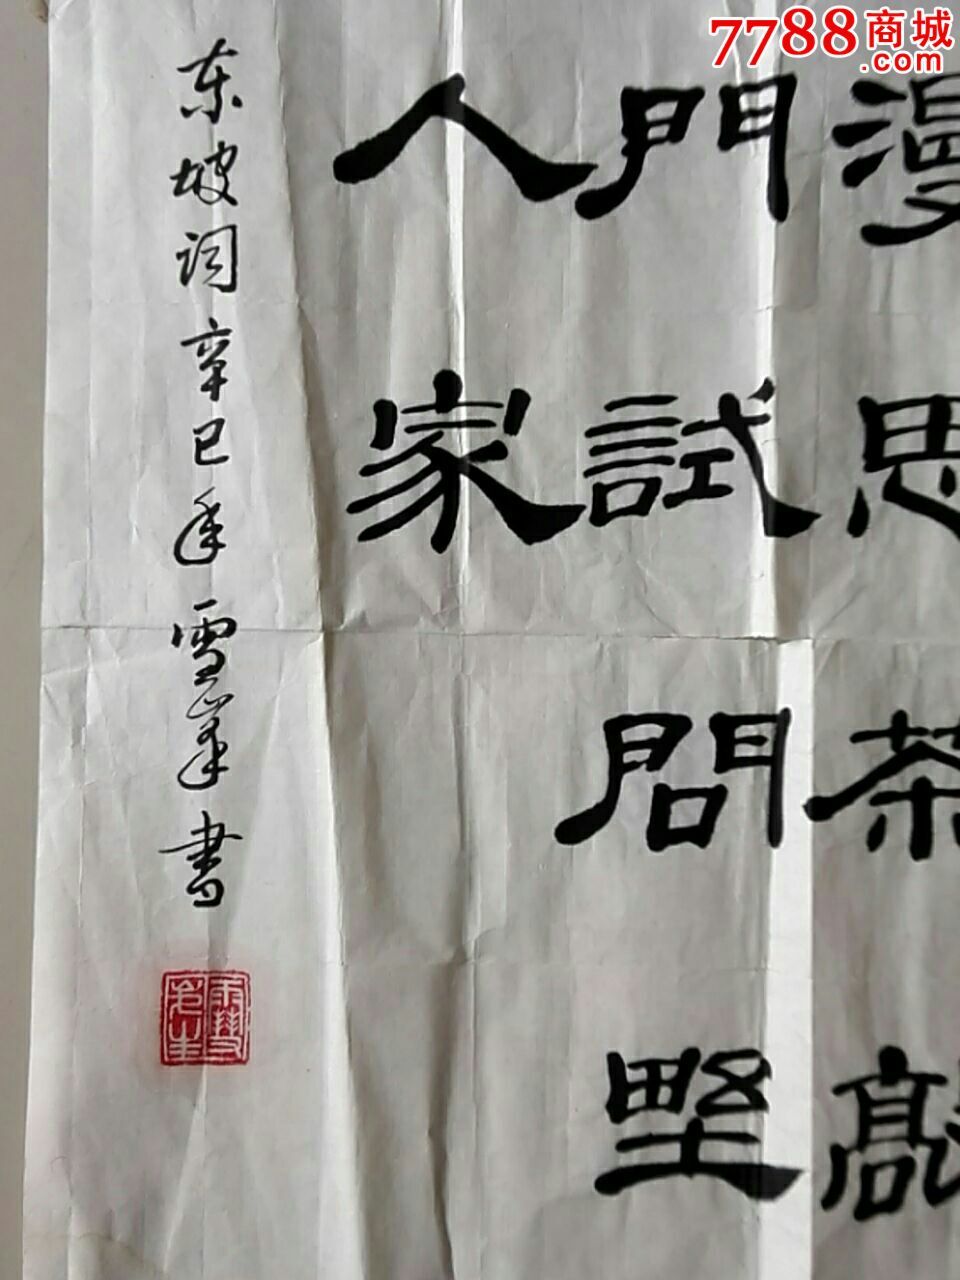 7788商城
.com
漫思茶敲
門試問野
人家
东坡词辛巳年雪峰书